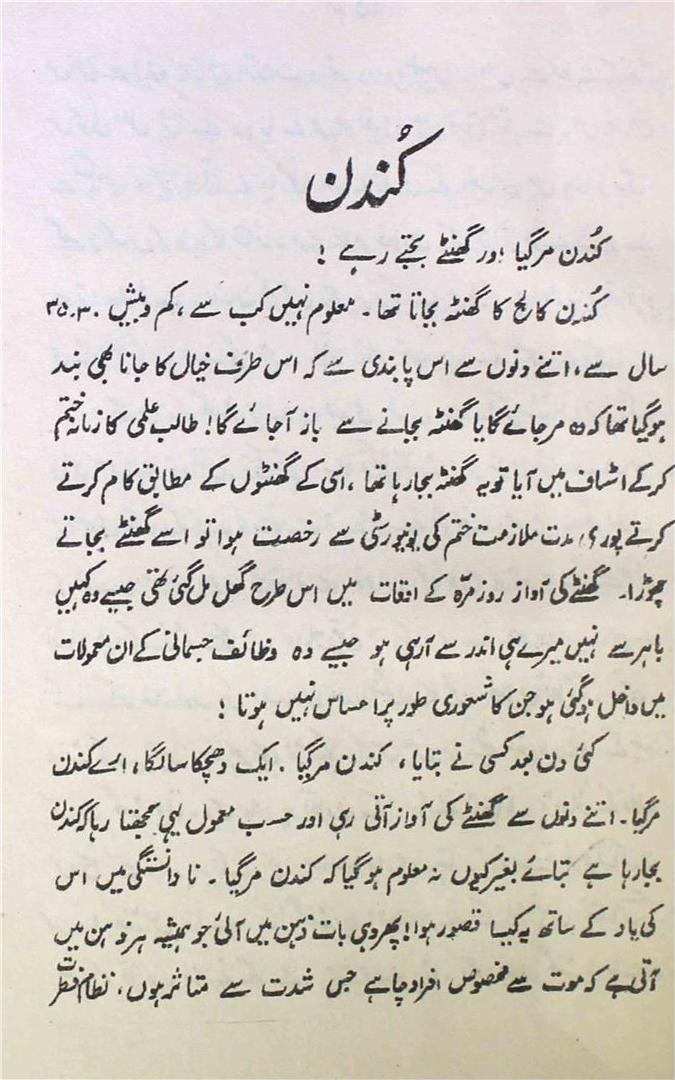 کُندن
کُندن مر گیا اور گھنٹے بجتے رہے !
کُندن کالج کا گھنٹہ بجاتا تھا۔ معلوم نہیں کب سے ، کم و بیش ۳۰۔۳۵
سال سے ، اتنے دنوں سے اس پابندی سے کہ اس طرف خیال کا جانا بھی بند
ہوگیا تھا کہ وہ مر جائے گا یا گھنٹہ بجانے سے باز آ جائے گا! طالب علمی کا زمانہ ختم
کرکے اسٹاف میں آیا تو یہ گھنٹہ بجا رہا تھا ، اسی کے گھنٹوں کے مطابق کام کرتے
کرتے پوری مدت ملازمت ختم کی یونیورسٹی سے رخصت ہوا تو اسے گھنٹے بجاتے
چھوڑا۔ گھنٹے کی آواز روز مرّہ کے اقعات میں اس طرح گھل مل گئی تھی جیسے وہ کہیں
باہر سے نہیں میرے ہی اندر سے آرہی ہو جیسے وہ وظائف جسمانی کے ان معمولات
میں داخل ہوگئی ہو جن کا شعوری طور پر احساس نہیں ہوتا !
کئی دن بعد کسی نے بتایا ، کندن مر گیا . ایک دھچکا سا لگا ، ارے کندن
مر گیا۔ اتنے دنوں سے گھنٹے کی آواز آتی رہی اور حسب معمول یہی سمجھتا رہا کہ کندن
بجا رہا ہے بتائے بغیر کیوں نہ معلوم ہو گیا کہ کندن مر گیا ۔ نا دانستگی میں اس
کی یاد کے ساتھ یہ کیسا قصور ہوا! پھر وہی بات ذہن میں آئی جو ہمیشہ ہر ذہن میں
آتی ہے کہ موت سے مخصوص افراد چاہے جس شدت سے متاثر ہوں ، نظام فطرت